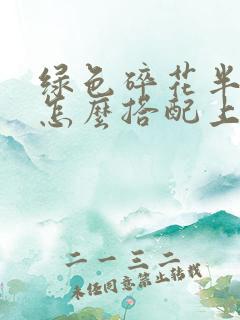 绿色碎花半
怎麽搭配上
二一三二
未经同意禁止转载